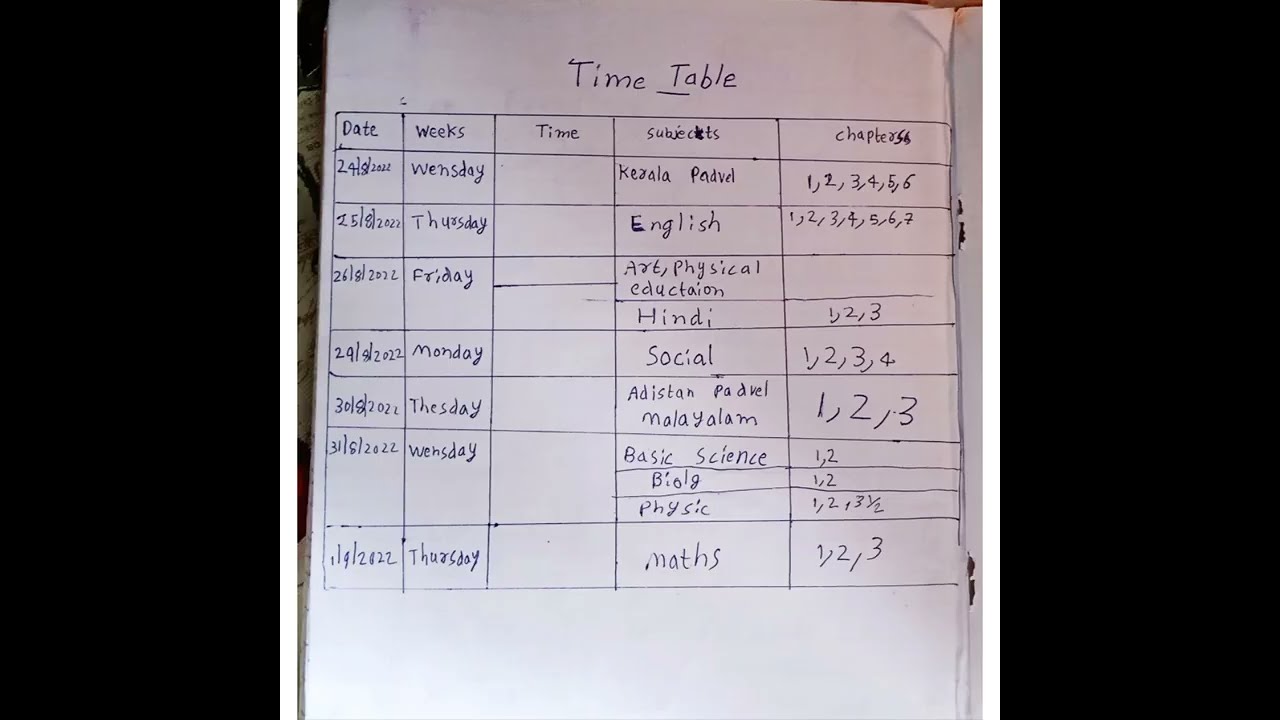 Time Table
Date Weeks Time Subjects Chapters
24/8/2022 Wensday Kerala Padvel 1,2,3,4,5,6
25/8/2022 Thursday English 1,2,3,4,5,6,7
26/8/2022 Friday Art, Physical
eductaion
Hindi 1,2,3
29/8/2022 Monday Social 1,2,3,4
30/8/2022 Thesday Adistan Padvel
Malayalam 1,2,3
31/8/2022 Wensday Basic Science 1,2
Biolg 1,2
Physic 1,2,3½
1/9/2022 Thursday Maths 1,2,3